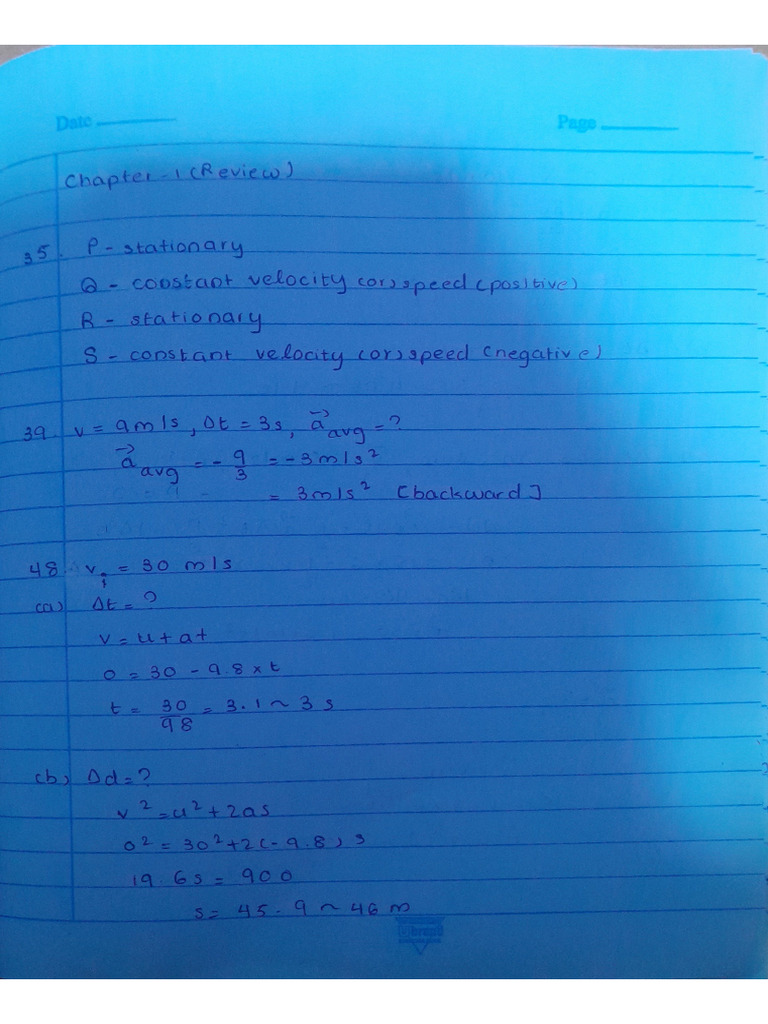 Date
Page
Chapter-1 (Review)
35. P - stationary
Q - constant velocity (or) speed (positive)
R - stationary
S - constant velocity (or) speed (negative)
39. v = 9m/s, Δt = 3s, a⃗avg = ?
a⃗avg = - 9/3 = -3m/s²
= 3m/s² [backward]
48. vi = 30 m/s
(a) Δt = ?
v = u + at
0 = 30 - 9.8 × t
t = 30/98 = 3.1 ~ 3 s
(b) Δd = ?
v² = u² + 2as
0² = 30² + 2(-9.8) s
19.6s = 900
s = 45.9 ~ 46 m